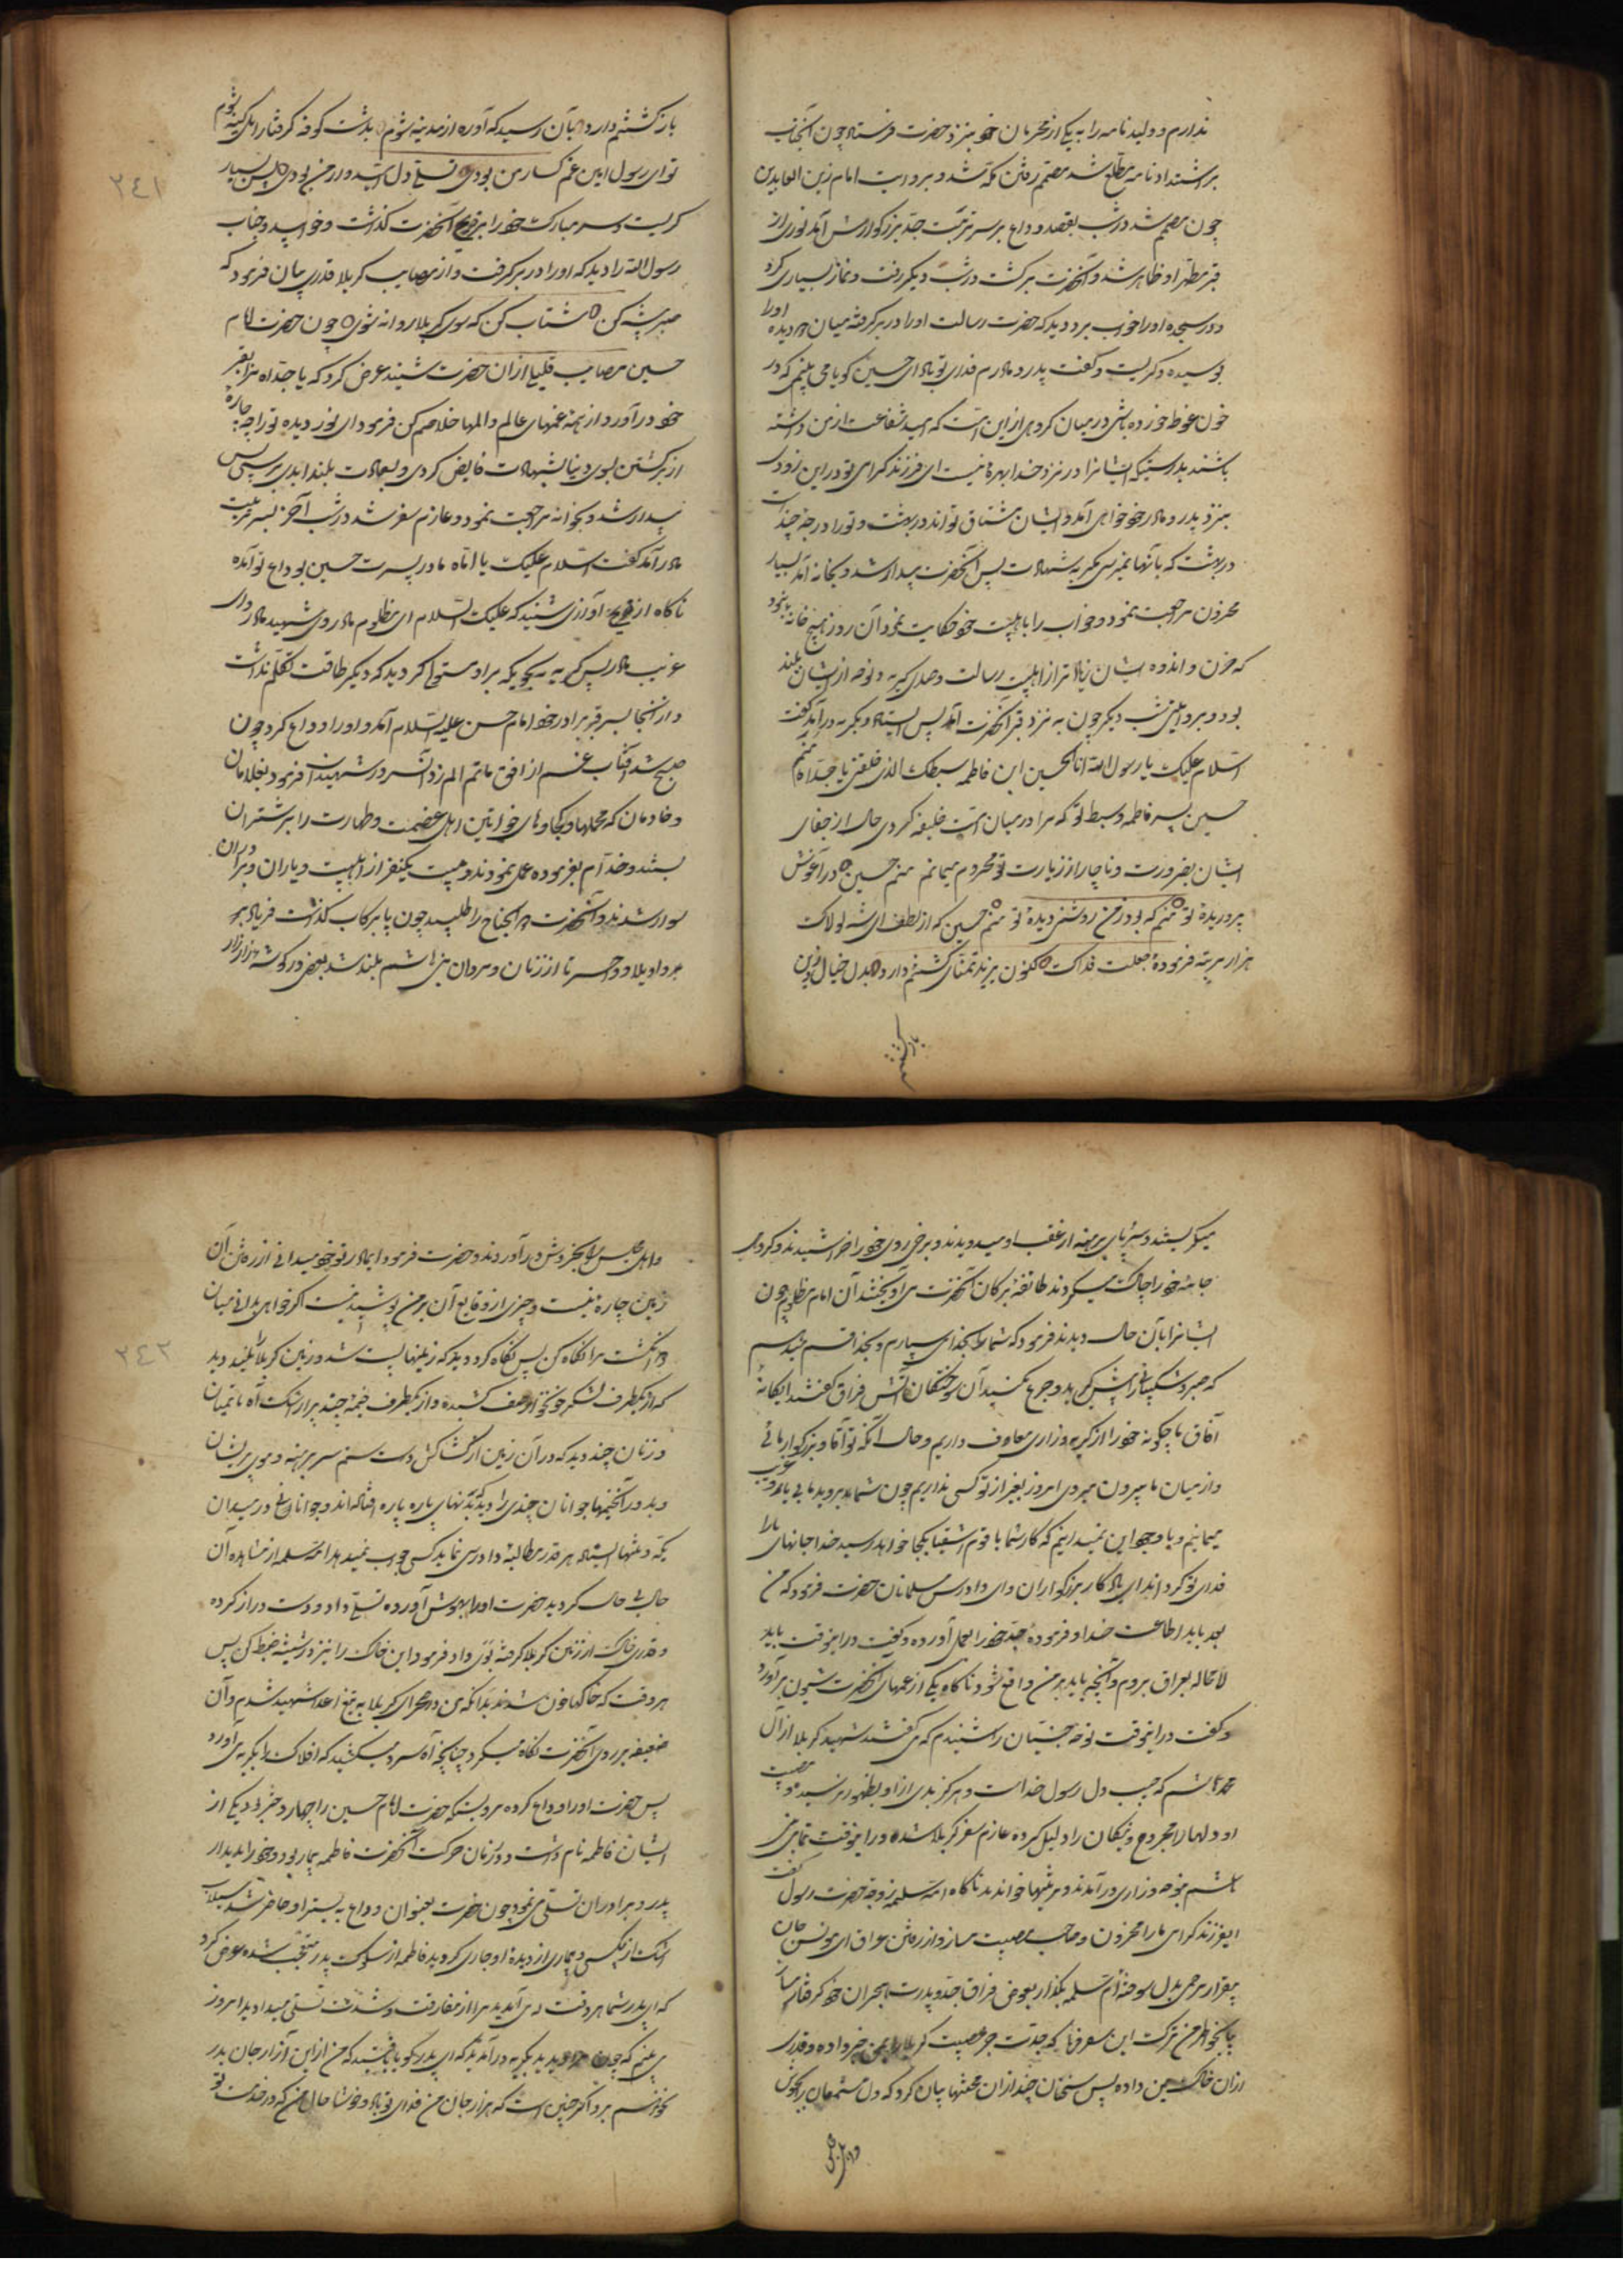 ندارم و ولید نامه را به یکی از محرمان خود بنزد حضرت فرستاد چون آنجناب
بر اشتداد نامه مطلع شد مصمم رفتن مکه شد و بروایت امام زین العابدین
چون مصمم شد در شب بقصد وداع بر سر تربت جد بزرکوارش آمد نوری از
قبر مطهر او ظاهر شد و آنحضرت برکشت و در شب دیکر رفت و نماز بسیاری کرد
و در سجده او را خواب برد دید که حضرت رسالت او را در بر کرفته میان دو دیده او را
بوسیده و کریست و گفت پدر و مادرم فدای تو باد ای حسین کویا می بینم که در
خون غوطه خورده باشی در میان کروهی از این امت که امید شفاعت از من داشته
باشند بدرستیکه ایشانرا در نزد خدا بهره نیست ای فرزند کرامی تو در این زودی
بنزد پدر و مادر خود خواهی آمد و ایشان مشتاق تو اند و در بهشت تو را درجه چند است
در بهشت که بآنها نمیرسی مکر به شهادت پس آنحضرت بیدار شد و بخانه آمد بسیار
محزون مراجعت نمود و خواب را باهلبیت خود حکایت نمود آن روز هیچ خانه نبود
که حزن و اندوه ایشان زیاده تر از اهلبیت رسالت و صدای کریه و نوحه از ایشان بلند
بود و بروایتی شب دیکر چون به نزد قبر آنحضرت آمد پس ایستاد و بکریه در آمد کفت
السلام علیک یا رسول الله انا الحسین ابن فاطمه سبطک الذی خلفتنی یا جداه منم
حسین پسر فاطمه و سبط تو که مرا در میان امت خلیفه کردی حال از جفای
ایشان بضرورت و ناچار از زیارت تو محروم میمانم منم حسین در آغوش
پروریدهٔ تو منم که بود ز من روشنی دیدهٔ تو منم حسین که از لطف ای شه لولاک
هزار مرتبه فرمودهٔ جعلت فداک کنون یزید تمنای کشتنم دارد بدل خیال
بازکشتنم
بازکشتنم دارد بآن رسید که آواره از مدینه شوم بدشت کوفه کرفتار اهل کینه شوم
تو ای رسول امین غم کسار من بودی تسلی دل امیدوار من بودی پس بسیار
کریست و سر مبارک خود را بر ضریح آنحضرت کذاشت و خوابید و جناب
رسول الله را دید که او را در بر کرفت و از مصایب کربلا قدری بیان فرمود که
صبر پیشه کن شتاب کن که سوی کربلا روانه شوی چون حضرت امام
حسین مصایب قلیلی از آن حضرت شنید عرض کرد که یا جداه مرا بقبر
خود در آور و از همه غمهای عالم و المها خلاصم کن فرمود ای نور دیده تو را چه چاره
از برکشتن بسوی دنیا بشهادت فایض کردی و بسعادت بلند ابدی برسی پس
بیدار شد و بخانه مراجعت نمود و عازم سفر شد در شب آخر بسر تربت
مادر آمد کفت السلام علیک یا اماه مادر پسرت حسین بوداع تو آمده
ناکاه از ضریح آوازی شنید که علیک السلام ای مظلوم مادر وی شهید مادر وای
غریب مادر پس کریه بر او مستولی کردید که دیکر طاقت تکلم نداشت
و از آنجا بسر قبر برادر خود امام حسن علیه السلام آمد و او را وداع کرد چون
صبح شد آفتاب غم از افق ماتم الم زد آنسرور شهیدان فرمود بغلامان
و خادمان که محملها و کجاوهای خواتین اهل عصمت و طهارت را بر شتران
بستند و خدام بفرموده عمل نمودند و بیست یکنفر از اهلبیت و یاران و برادران
سوار شدند و آنحضرت ذوالجناح را طلبید چون پا بر رکاب کذاشت فریاد
وا ویلا و وا حسرتا از زنان و مردان بنی هاشم بلند شد بعضی در کوشه زار زار
۲۴۱
میکریستند و سر و پای برهنه از عقب او میدویدند و برخی روی خود را خراشیدند و کروهی
جامهٔ خود را چاک میکردند طائفهٔ بر کاب آنحضرت می آویختند آن امام مظلوم چون
ایشانرا بآن حال دید فرمود که شما را بخدا می سپارم و بخدا قسم میدهم
که صبر و شکیبائی را پیش کیرید و جزع نکنید آن سوختکان آتش فراق کفتند ای یکانهٔ
آفاق ما چکونه خود را از کریه و زاری معاف داریم و حال آنکه تو آقا و بزرکوار مائی
و از میان ما بیرون میروی امروز بغیر از تو کسی نداریم چون شما بروید ما بی یاور و غریب
میمانیم و با وجود این نمیدانیم که کار شما با قوم اشقیا بکجا خواهد رسید خدا جانهای ما را
فدای تو کرداند ای یادکار بزرکواران و ای دادرس مسلمانان حضرت فرمود که من
بعد باید اطاعت خدا و فرمودهٔ جد خود را بعمل آورده و کفت در اینوقت باید
لا محاله بعراق بروم و آنچه باید بر من واقع شود ناکاه یکی از عمهای آنحضرت شیون بر آورد
و کفت در اینوقت نوحهٔ جنیان را شنیدم که می کفتند شهید کربلا از آل
محمد هاشم که حبیب دل رسول خداست و هرکز بدی از او بظهور نرسیده و مصیبت
او دلها را مجروح و نیکان را ذلیل کرده عازم سفر کربلا شده در اینوقت تمامی بنی
هاشم بنوحه و زاری در آمدند و مرثیها خواندند ناکاه ام سلمه زوجهٔ حضرت رسول کفت
ای فرزند کرامی ما را محزون و صاحب مصیبت مساز و از رفتن عراق ای مونس جان
بیقرار رحمی بدل سوختهٔ ام سلمه بکذار بعوض فراق جد و پدرت بهجران خود کرفتار مساز
بیا بخاطر من ترک این سفر نما که جدت خبر مصیبت کربلا را بمن خبر داده و قدری
از آن خاک بمن داده پس سخنان چند از آن محنتها بیان کرد که دل مستمعان را بجوش
و اهل مجلس را بخروش در آوردند و حضرت فرمود ای مادر تو خود میدانی از رفتن آن
زمین چاره نیست و چیزی از وقایع آن بر من پوشیده نیست اکر خواهی بدانی میان
دو انکشت مرا نکاه کن پس نکاه کرد دید که زمینها پست شد و زمین کربلا بلند دید
که از یکطرف لشکر خونخوار صف کشیده و از یکطرف خیمهٔ چند پر از اشک آه یتیمان
و زنان چند دید که در آن زمین از کشاکش دست ستم سر برهنه و موی پریشان
و بدور آنخیمها جوانان چندی را دید که بدنهای پاره پاره افتاده اند و جوانان در میدان
یکه و تنها ایستاده هر قدر مطالبهٔ دادرسی نماید کسی جواب نمیدهد ام سلمه از مشاهده آن
حال بی حال کردید حضرت او را بهوش آورده تسلی داد و دست دراز کرده
و قدری خاک از زمین کربلا کرفته بوی داد فرمود این خاک را نیز در شیشه ضبط کن پس
هر وقت که خاکها خون شدند بدانکه من در صحرای کربلا به تیغ اعدا شهید شدم و آن
ضعیفه بر روی آنحضرت نکاه میکرد چنانچه آه سرد میکشید که افلاک را بکریه می آورد
پس حضرت او را وداع کرده مرویست که حضرت امام حسین را چهار دختر بود یکی از
ایشان فاطمه نام داشت و در زمان حرکت آنحضرت فاطمه بیمار بود و خود را بدیدار
پدر و برادران تسلی می نمود چون حضرت بعنوان وداع به بستر او حاضر شد سیلاب
اشک از بیکسی و بیماری از دیدهٔ او جاری کردید فاطمه از سلوک پدر متعجب شده عرض کرد
که ای پدر شما هر وقت می آمدید مرا از مفارقت و شدت تسلی میدادید امروز
می بینم که چون مرا دیدید بکریه در آمدید که ای پدر کویا یافتید که من از این آزار جان بدر
نخواهم برد اکر چنین است که هزار جان من فدای تو باد و خوشا حال من که در خدمت تو
۲۴۲